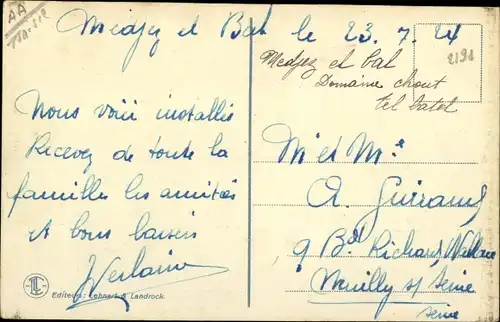 AA
Medjez el Bab le 23.7.24
2191
Medjez el bal
Domaine chout
tel batel
Nous voici installés
Recevez de toute la
familles les amitiés
et bons baisers
Verlaine
M et Me
A. Guiraud
9 Bd Richard Wallace
Neuilly s/ Seine
Seine
Editeurs: Lehnert & Landrock.